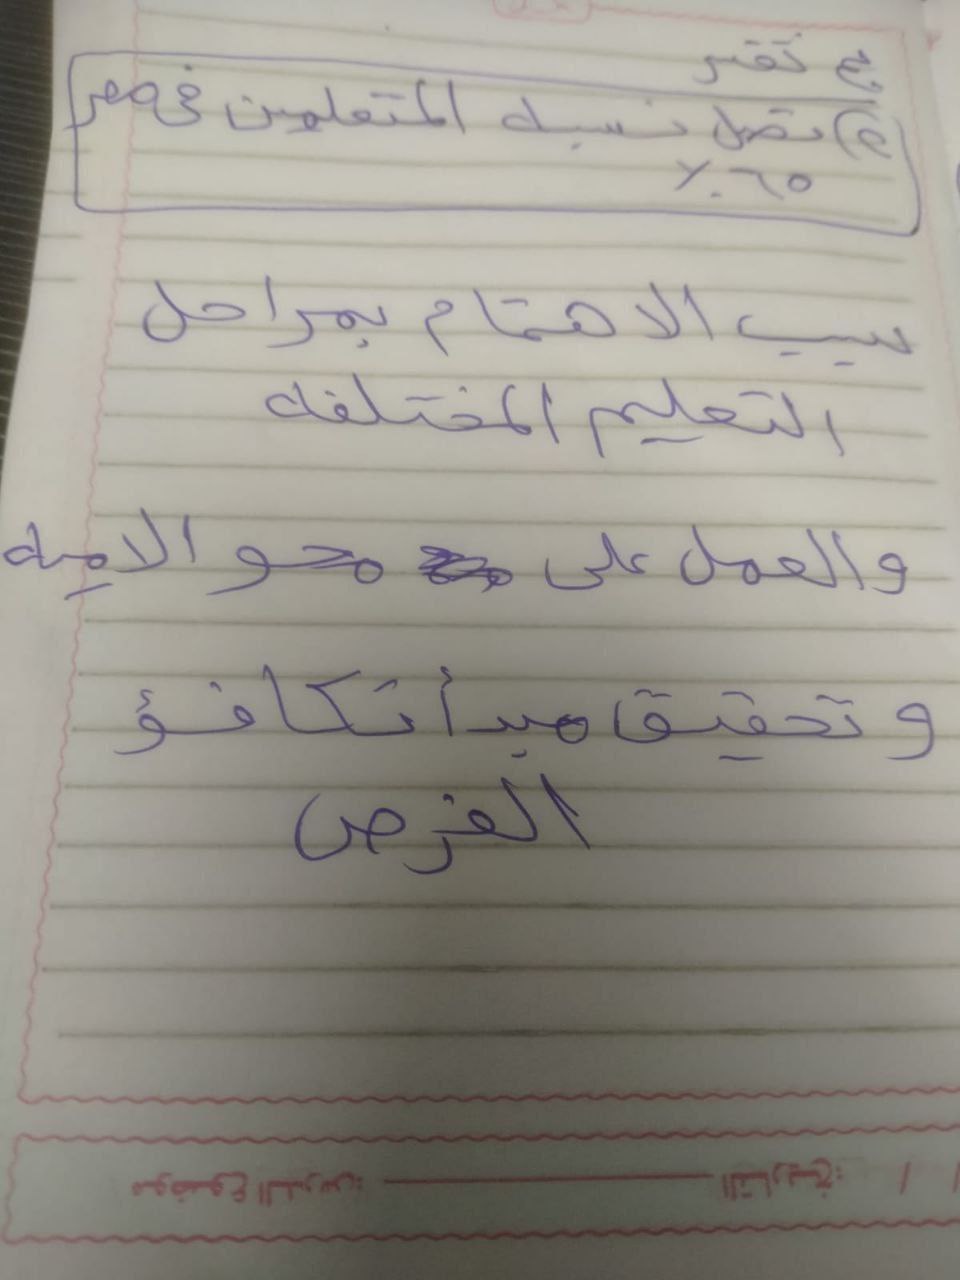 بم تفسر
٥) تصل نسبه المتعلمين في مصر
٦٥ .٪
بسبب الاهتمام بمراحل
التعليم المختلفه
والعمل على محو الاميه
و تحقيق مبدأ تكافؤ
الفرص
التاريخ: / /
موضوع الدرس: